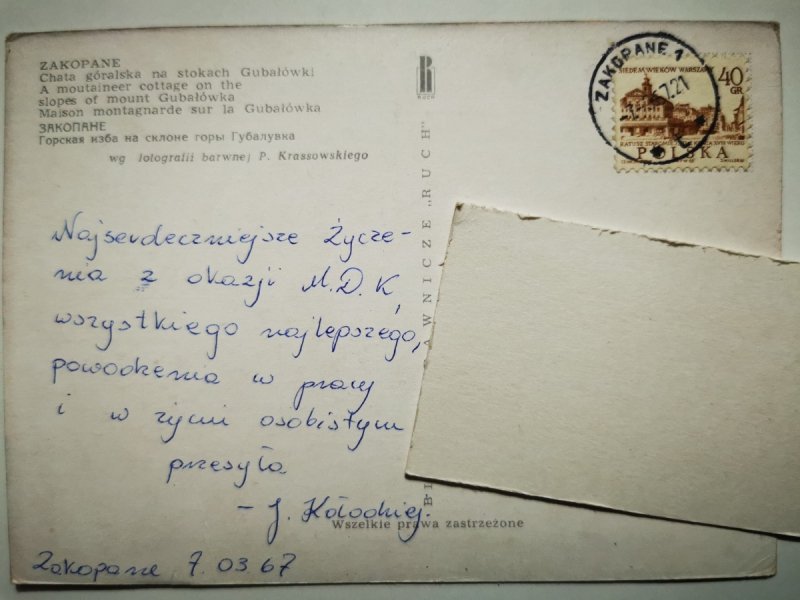 ZAKOPANE
Chata góralska na stokach Gubałówki
A moutaineer cottage on the
slopes of mount Gubałówka
Maison montagnarde sur la Gubałówka
ЗАКОПАНЕ
Горская изба на склоне горы Губалувка
wg fotografii barwnej P. Krassowskiego
RUCH
AWNICZE „RUCH"
ZAKOPANE 1
SIEDEM WIEKÓW WARSZAWY
40
GR
POLSKA
Najserdeczniejsze Życze-
nia z okazji M.D.K,
wszystkiego najlepszego,
powodzenia w pracy
i w życiu osobistym
przesyła
- J. Kołodziej.
Wszelkie prawa zastrzeżone
Zakopane 7.03.67